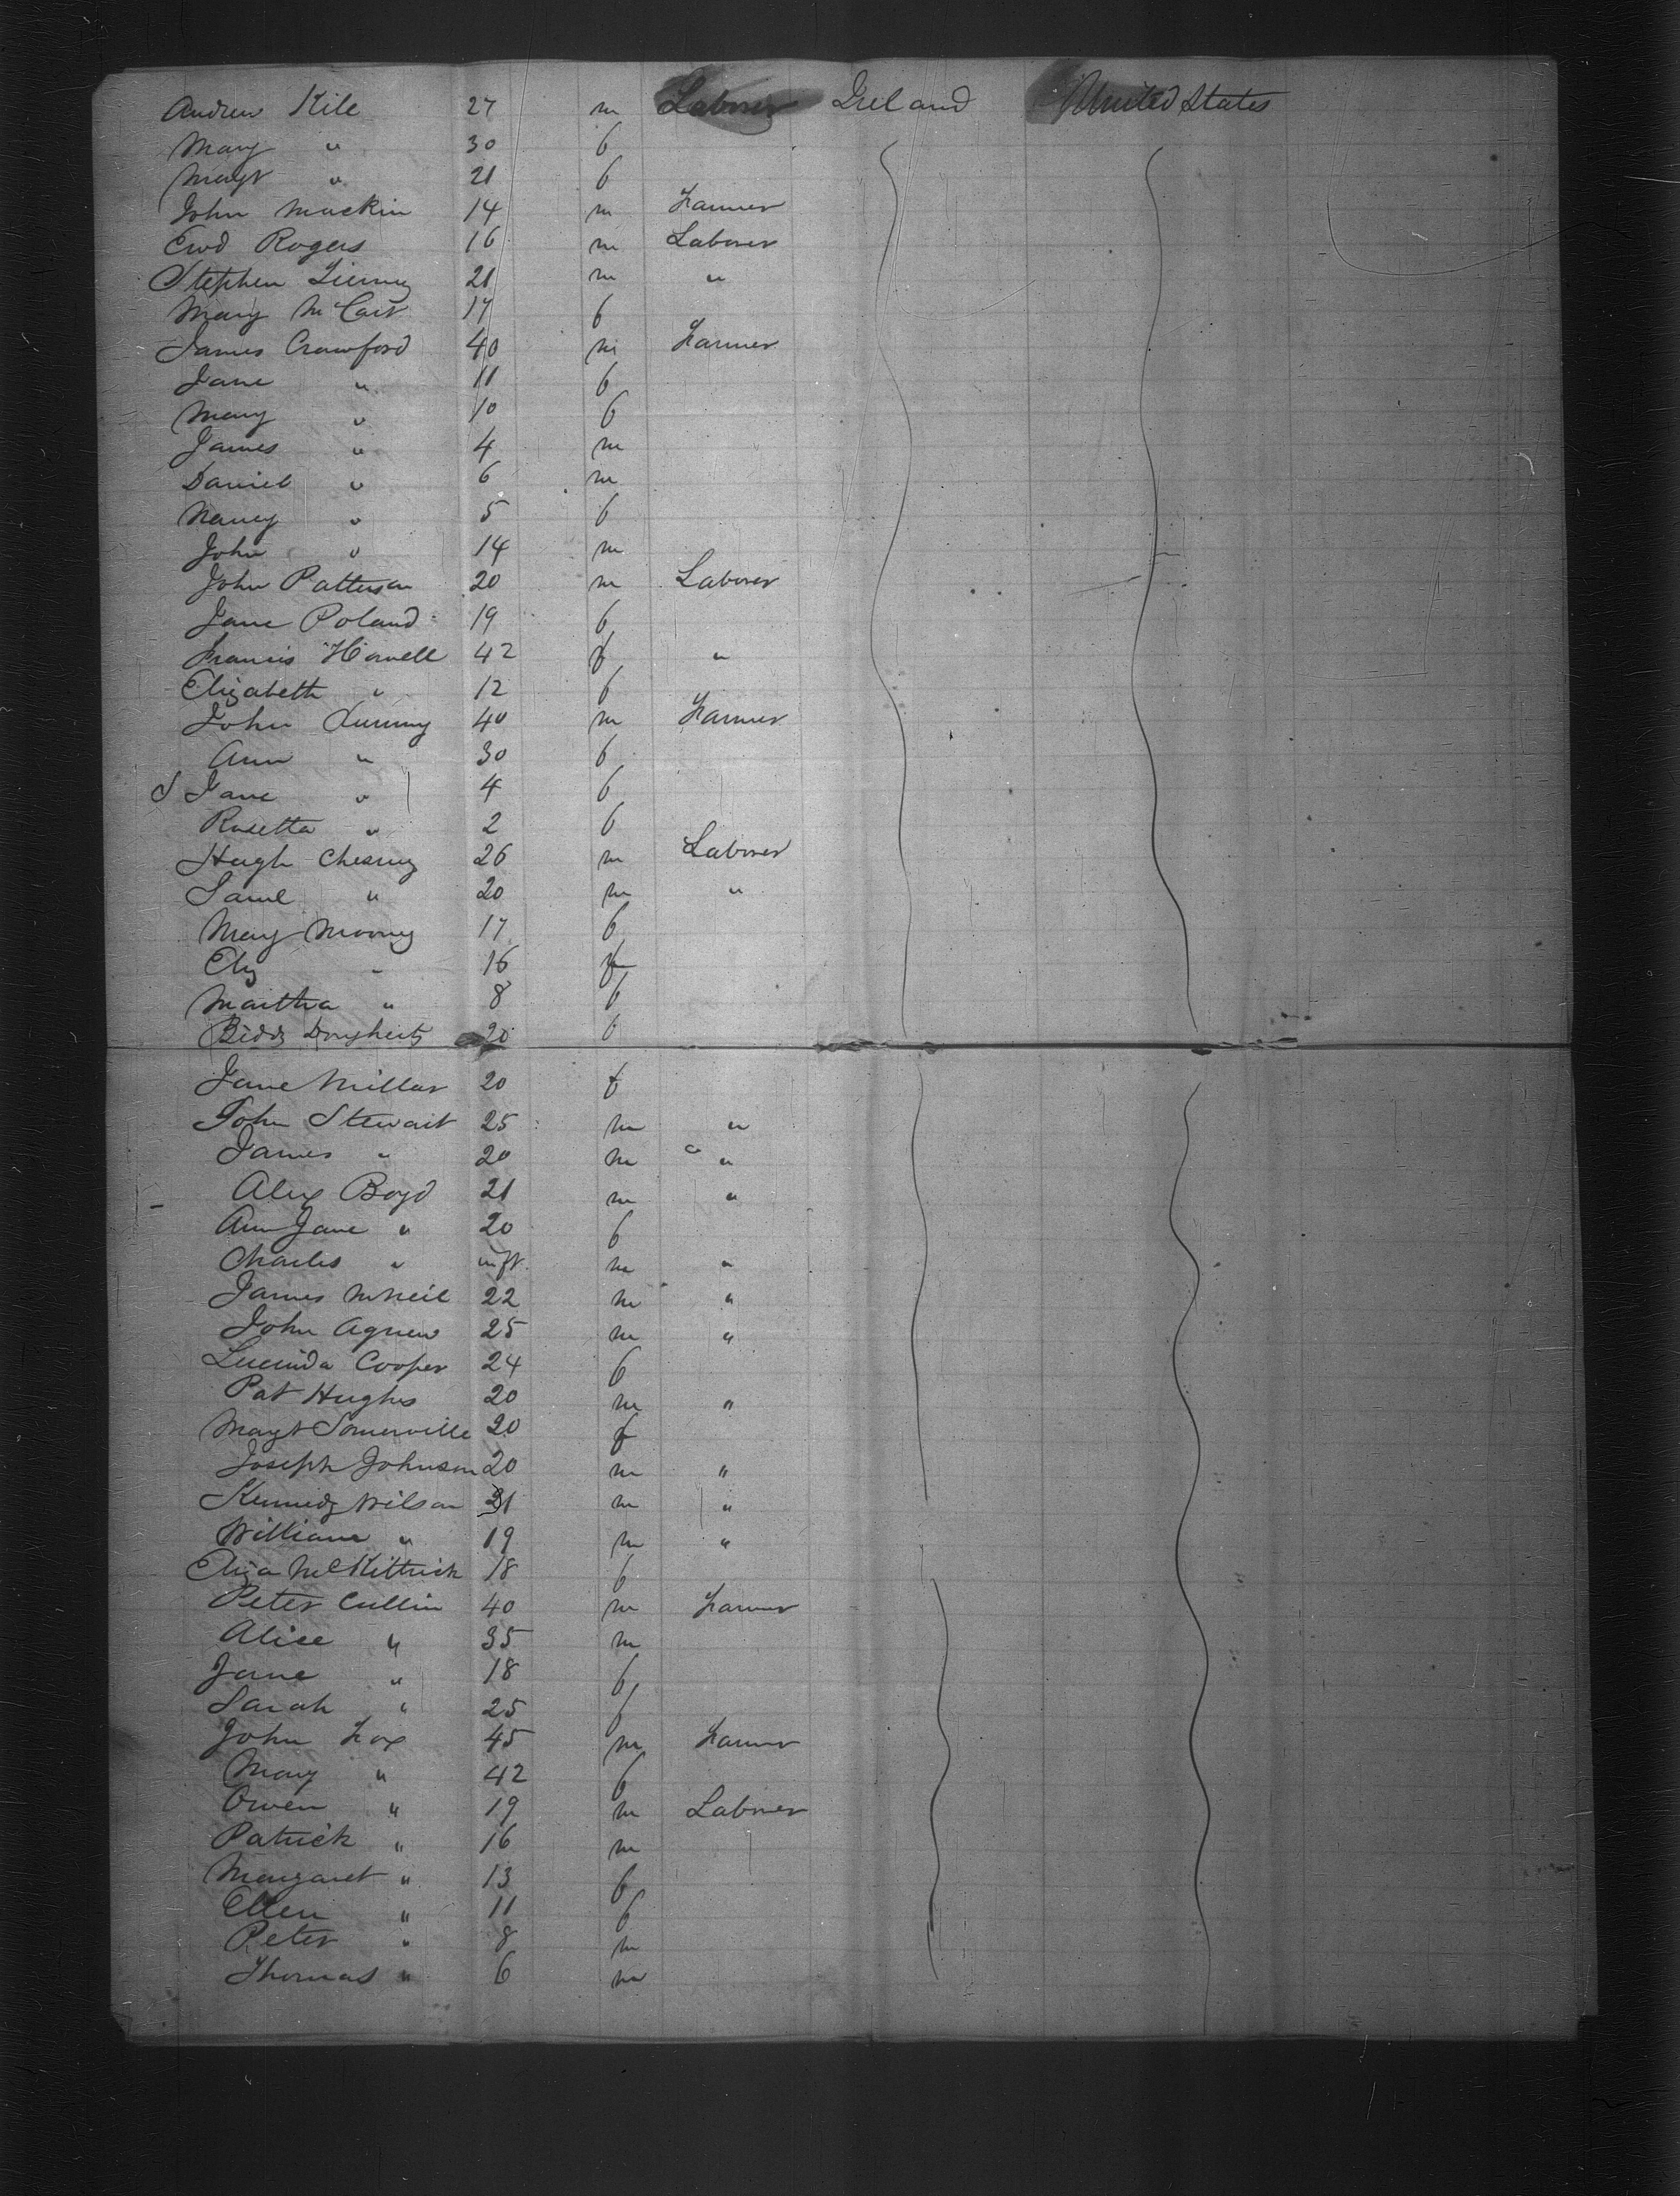 Andrew Kile 27 m Laborer Ireland United States
Mary " 30 f
Magt " 21 f
John Mackin 14 m Farmer
Ewd Rogers 16 m Laborer
Stephen 21 m "
Mary McCart 17 f
James Crawford 40 m Farmer
Jane " 11 f
Mary " 10 f
James " 4 m
Daniel " 6 m
Nancy " 5 f
John " 14 m
John Patterson 20 m Laborer
Jane Poland 19 f
Francis Howell 42 f "
Elizabeth " 12 f
John 40 m Farmer
Ann " 30 f
Jane " 4 f
Rosetta " 2 f
Hugh Chesney 26 m Laborer
Saml " 20 m "
Mary Mooney 17 f
Eliz " 16 f
Martha " 8 f
Biddy Dougherty 20 f
Jane Millar 20 f
John Stewart 25 m "
James " 20 m "
Alex Boyd 21 m "
Ann Jane " 20 f
Charles " inft. m "
James McNeil 22 m "
John Agnew 25 m "
Lucinda Cooper 24 f
Pat Hughes 20 m "
Magt Somerville 20 f
Joseph Johnson 20 m "
Kennedy Wilson 21 m "
William " 19 m "
Eliza McKittrick 18 f
Peter Cullin 40 m Farmer
Alice " 35 m
Jane " 18 f
Sarah " 25 f
John Fox 45 m Farmer
Mary " 42 f
Owen " 19 m Laborer
Patrick " 16 m
Margaret " 13 f
Ellen " 11 f
Peter " 8 m
Thomas " 6 m